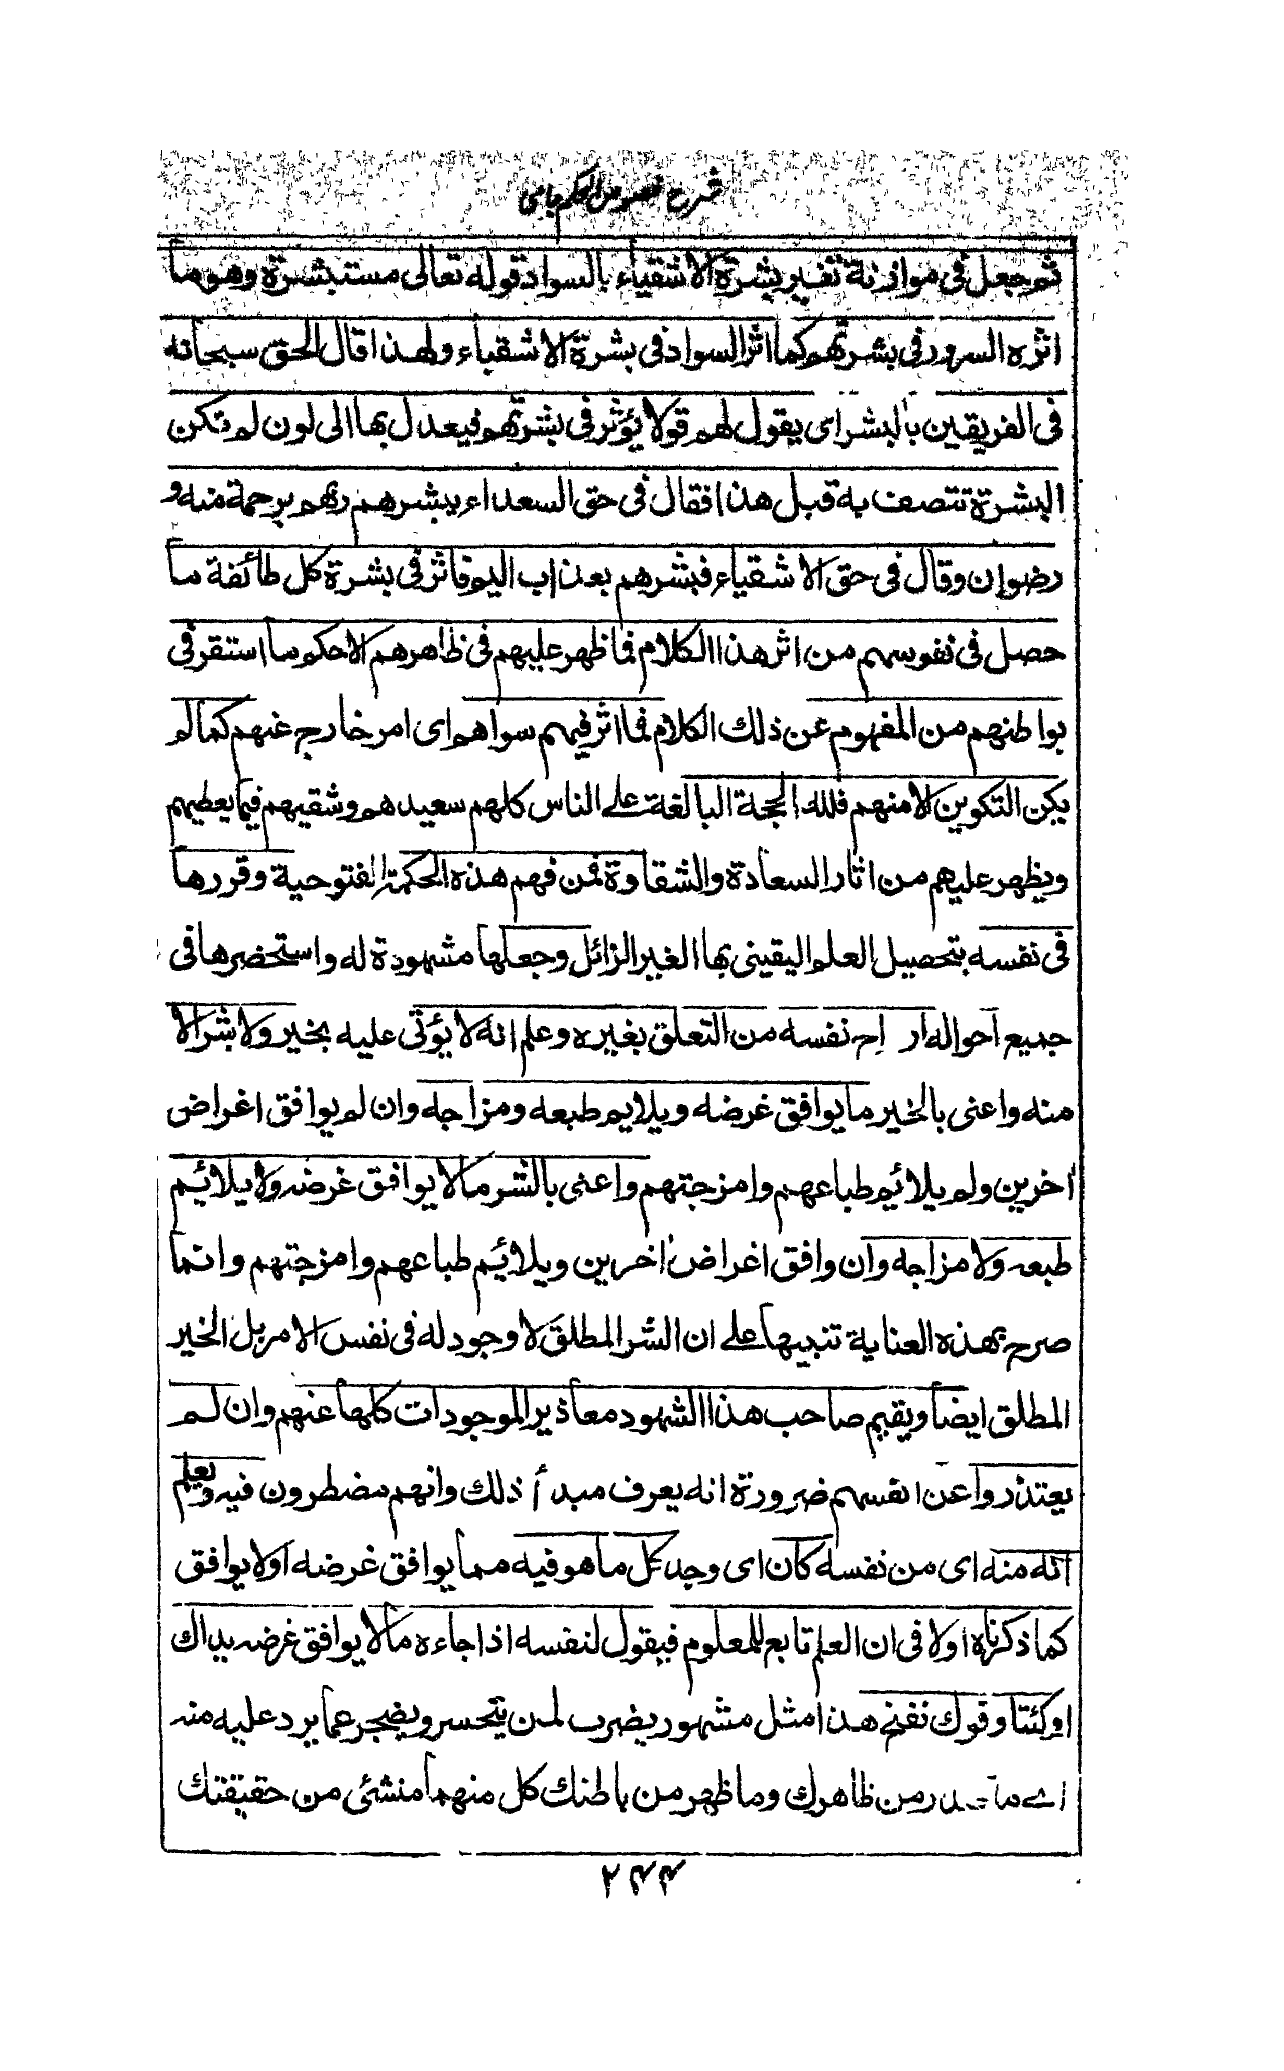 شرح فصوص الحكم جامى
ثم جعل فى موازنة تغير بشرة الاشقياء بالسواد قوله تعالى مستبشرة وهو ما
اثره السرور فى بشرتهم كما اثر السواد فى بشرة الاشقياء ولهذا قال الحق سبحانه
فى الفريقين بالبشراى يقول لهم قولا يؤثر فى بشرتهم فيعدل بها الى لون لم تكن
البشرة تتصف به قبل هذا فقال فى حق السعداء يبشرهم ربهم برحمة منه و
رضوان وقال فى حق الاشقياء فبشرهم بعذاب اليم فاثر فى بشرة كل طائفة ما
حصل فى نفوسهم من اثر هذا الكلام فما ظهر عليهم فى ظاهرهم الاحكم ما استقر فى
بواطنهم من المفهوم عن ذلك الكلام فما اثر فيهم سواهم اى امر خارج عنهم كما لم
يكن التكوين الامنهم فلله الحجة البالغة على الناس كلهم سعيدهم وشقيهم فيما يعطيهم
ويظهر عليهم من اثار السعادة والشقاوة فمن فهم هذه الحكمة الفتوحية وقررها
فى نفسه بتحصيل العلم اليقينى بها الغير الزائل وجعلها مشهودة له واستحضرها فى
جميع احواله اراح نفسه من التعلق بغيره وعلم انه لا يؤتى عليه بخير ولا بشر الا
منه واعنى بالخير ما يوافق غرضه ويلايم طبعه ومزاجه وان لم يوافق اغراض
اخرين ولم يلائم طباعهم وامزجتهم واعنى بالشر ما لا يوافق غرضه ولا يلائم
طبعه ولا مزاجه وان وافق اغراض اخرين ويلائم طباعهم وامزجتهم وانما
صرح بهذه العناية تنبيها على ان الشر المطلق لا وجود له فى نفس الامر بل الخير
المطلق ايضا ويقيم صاحب هذا الشهود معاذير الموجودات كلها عنهم وان لم
يعتذروا عن انفسهم ضرورة انه يعرف مبدأ ذلك وانهم مضطرون فيه ويعلم
انه منه اى من نفسه كان اى وجد كل ما هو فيه مما يوافق غرضه اولا يوافق
كما ذكرناه اولا فى ان العلم تابع للمعلوم فيقول لنفسه اذا جاءه ما لا يوافق غرضه يداك
اوكئتا وفوك نفخ هذا مثل مشهور يضرب لمن يتحسر ويضجر عما يرد عليه منه
اے ما من ظاهرك وما ظهر من باطنك كل منهما منشئى من حقيقتك
۲۴۴